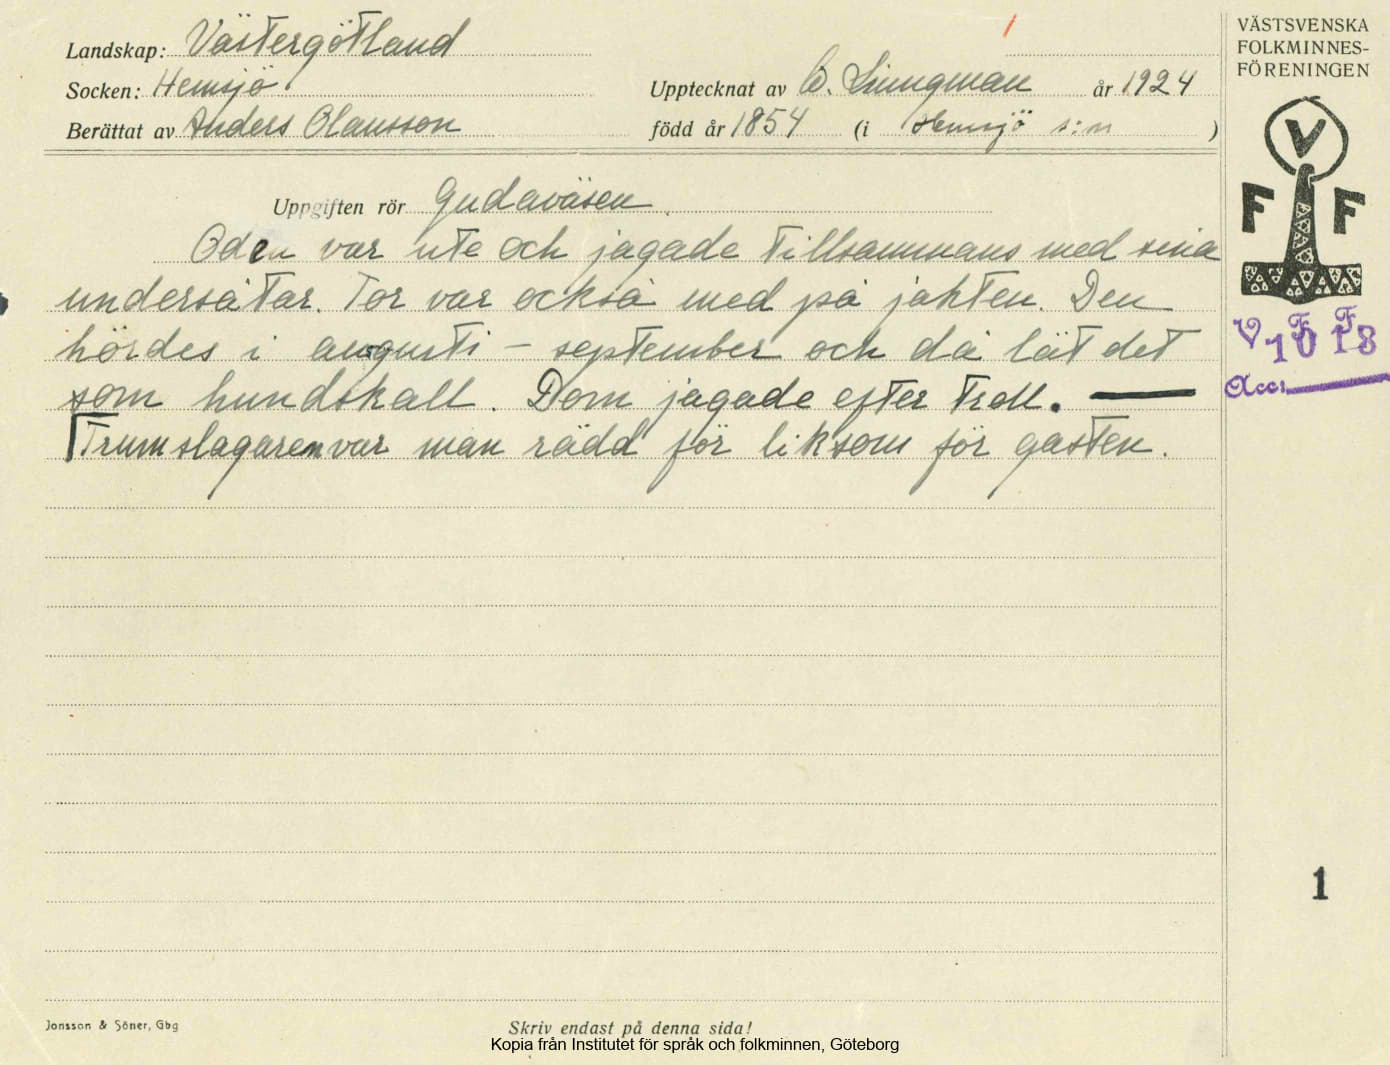 Landskap: Västergötland
Socken: Hemsjö
Upptecknat av W. Liungman år 1924
Berättat av Anders Olausson
född år 1854 (i Hemsjö s:n )
VÄSTSVENSKA
FOLKMINNES-
FÖRENINGEN
V
F F
VFF
1018
Acc:
Uppgiften rör Gudaväsen
Oden var ute och jagade tillsammans med sina
undersåtar. Tor var också med på jakten. Den
hördes i augusti – september och då lät det
som hundskall. Dom jagade efter troll. —
Trumslagaren var man rädd för liksom för gasten.
1
Jonsson & Söner, Gbg
Skriv endast på denna sida!
Kopia från Institutet för språk och folkminnen, Göteborg